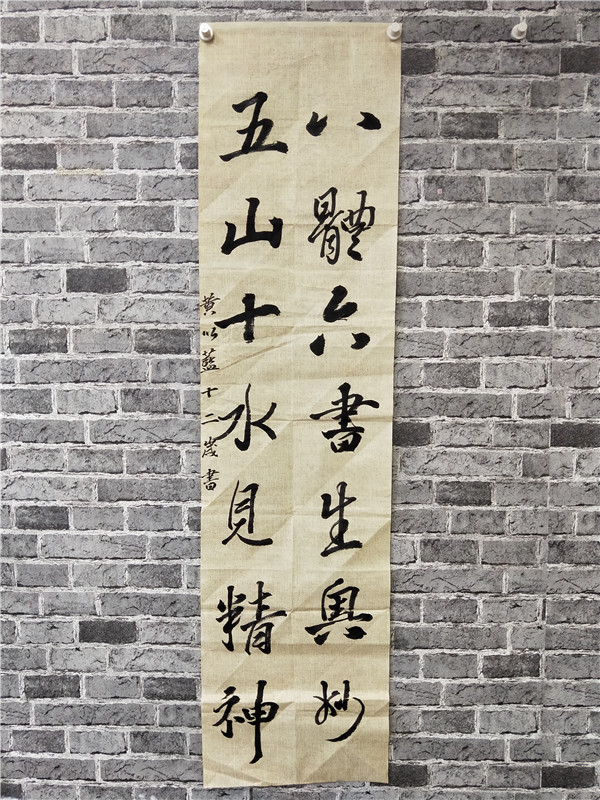 八體六書生奧妙
五山十水見精神
黄以藍十二歲書